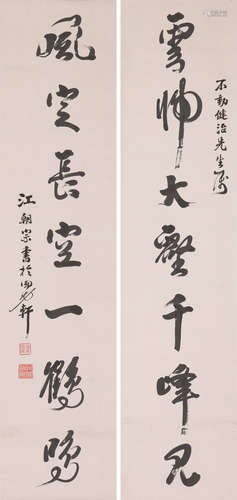 不動健治先生屬
雲歸大壑千峰見
風定長空一鶴鳴
江朝宗書於軒